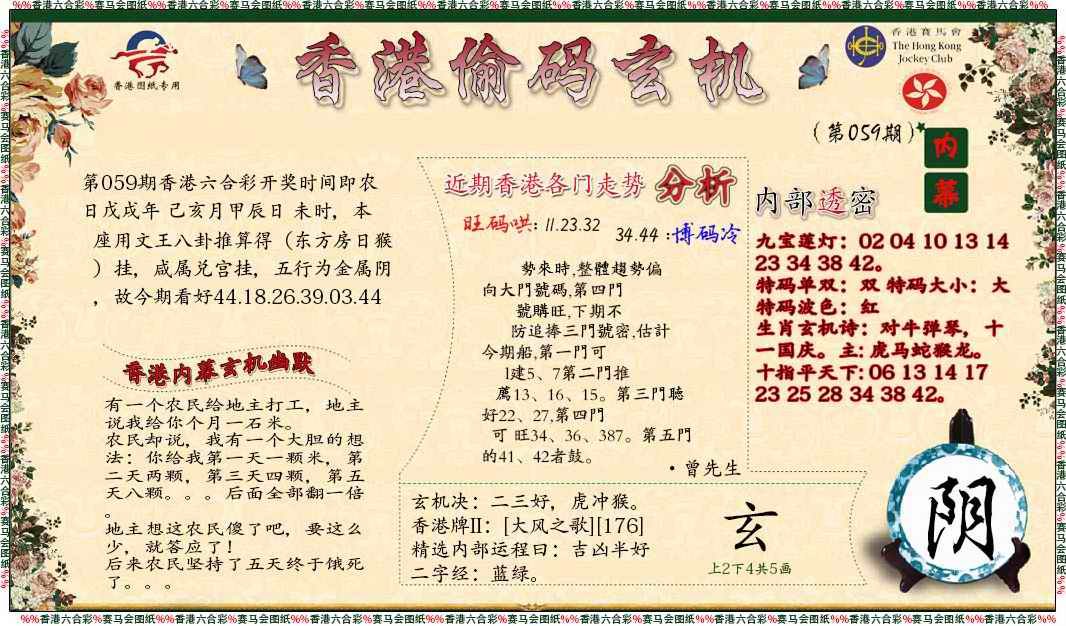 %%香港六合彩%赛马会图纸%%香港六合彩%赛马会图纸%%香港六合彩%赛马会图纸%%香港六合彩%赛马会图纸%%香港六合彩%赛马会图纸%%香港六合彩%赛马会图纸%%香港六合彩%赛马会图纸%%香港六合彩%%
香港图纸专用
香港偷码玄机
香港賽馬會
The Hong Kong
Jockey Club
(第059期)
内幕
第059期香港六合彩开奖时间即农
日戊戌年 己亥月甲辰日 未时，本
座用文王八卦推算得（东方房日猴
）挂，咸属兑宫挂，五行为金属阴
，故今期看好44.18.26.39.03.44
香港内幕玄机幽默
有一个农民给地主打工，地主
说我给你个月一石米。
农民却说，我有一个大胆的想
法：你给我第一天一颗米，第
二天两颗，第三天四颗，第五
天八颗。。。后面全部翻一倍
。
地主想这农民傻了吧，要这么
少，就答应了！
后来农民坚持了五天终于饿死
了。。。
近期香港各门走势 分析
旺码哄: 11.23.32
34.44 :博码冷
勢來時,整體趨勢偏
向大門號碼,第四門
號購旺,下期不
防追捧三門號密,估計
今期船,第一門可
1建5、7第二門推
薦13、16、15。第三門聴
好22、27,第四門
可 旺34、36、387。第五門
的41、42者鼓。
·曾先生
玄机决：二三好，虎冲猴。
香港牌II：[大风之歌][176]
精选内部运程日：吉凶半好
二字经：蓝绿。
玄
上2下4共5画
内部透密
九宝莲灯：02 04 10 13 14
23 34 38 42。
特码单双：双 特码大小：大
特码波色：红
生肖玄机诗：对牛弹琴，十
一国庆。主: 虎马蛇猴龙。
十指平天下: 06 13 14 17
23 25 28 34 38 42。
阴
%%香港六合彩%赛马会图纸%%香港六合彩%赛马会图纸%%香港六合彩%赛马会图纸%%香港六合彩%赛马会图纸%%香港六合彩%赛马会图纸%%香港六合彩%赛马会图纸%%香港六合彩%赛马会图纸%%香港六合彩%%